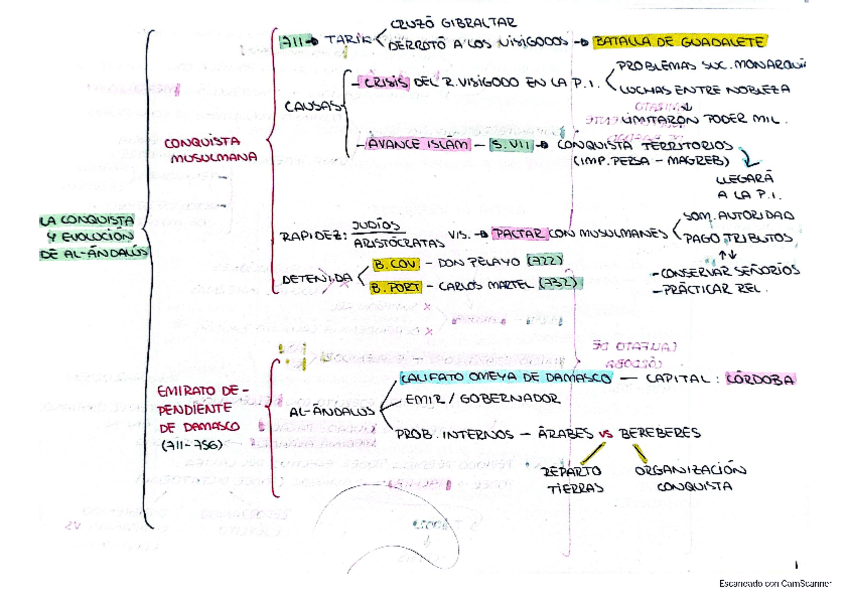 CRUZÓ GIBRALTAR
711 → TARIK
DERROTÓ A LOS VISIGODOS → BATALLA DE GUADALETE
PROBLEMAS SUC. MONARQUI
- CRISIS DEL R. VISIGODO EN LA P.I.
LUCHAS ENTRE NOBLEZA
CAUSAS
LIMITARON PODER MIL.
CONQUISTA
MUSULMANA
- AVANCE ISLÁM - S.VII → CONQUISTA TERRITORIOS
(IMP. PERSA - MAGREB)
LLEGARÁ
A LA P.I.
LA CONQUISTA
Y EVOLUCIÓN
DE AL-ÁNDALÚS
RAPIDEZ: JUDÍOS
ARISTÓCRATAS VIS. → PACTAR CON MUSULMANES
SOM. AUTORIDAD
PAGO TRIBUTOS
- CONSERVAR SEÑORÍOS
- PRÁCTICAR REL.
DETENIDA
B. COV. - DON PELAYO (722)
B. PORT - CARLOS MARTEL (732)
EMIRATO DE-
PENDIENTE
DE DAMASCO
(711-756)
AL-ÁNDALÚS
CALIFATO OMEYA DE DAMASCO - CAPITAL: CÓRDOBA
EMIR / GOBERNADOR
PROB. INTERNOS - ÁRABES VS BEREBERES
REPARTO
TIERRAS
ORGANIZACIÓN
CONQUISTA
1
Escaneado con CamScanner